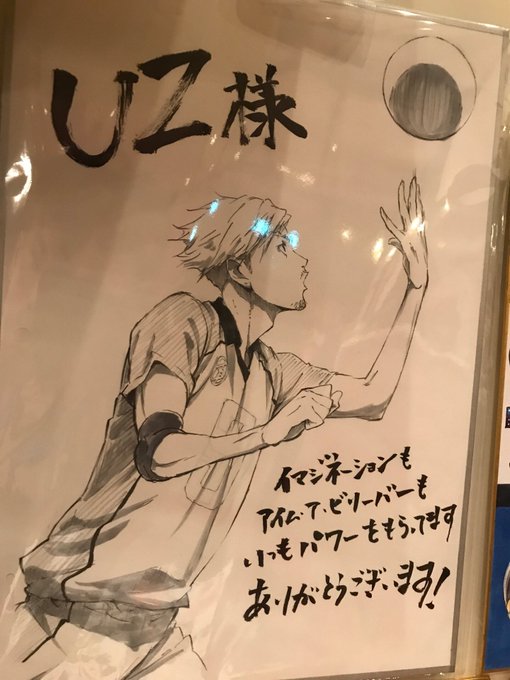 UZ様
イマジネーションも
アイム・ア・ビリーバーも
いつもパワーをもらってます
ありがとうございます!